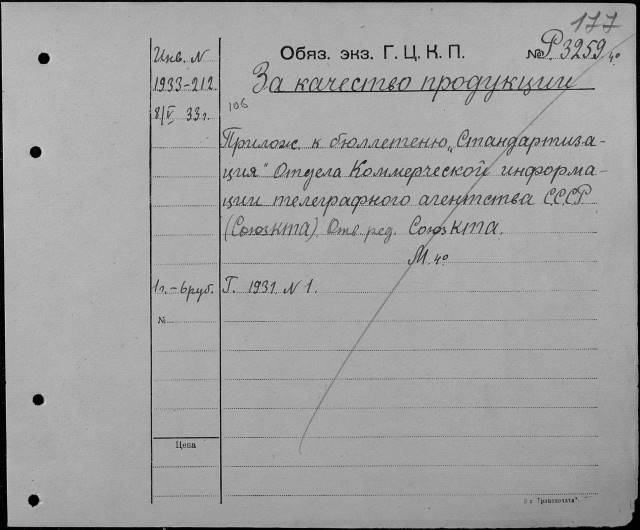 177
Инв. N
Обяз. экз. Г. Ц. К. П.
№ Р3259 4º
1933-212
За качество продукции
8/V 33 г.
106
Прилож. к бюллетеню „Стандартиза-
ция" Отдела Коммерческой информа-
ции телеграфного агентства СССР
(Союзкта). Отв. ред. Союзкта.
М. 4º
1 г. – 6 руб.
Г. 1931 N 1.
№
Цена